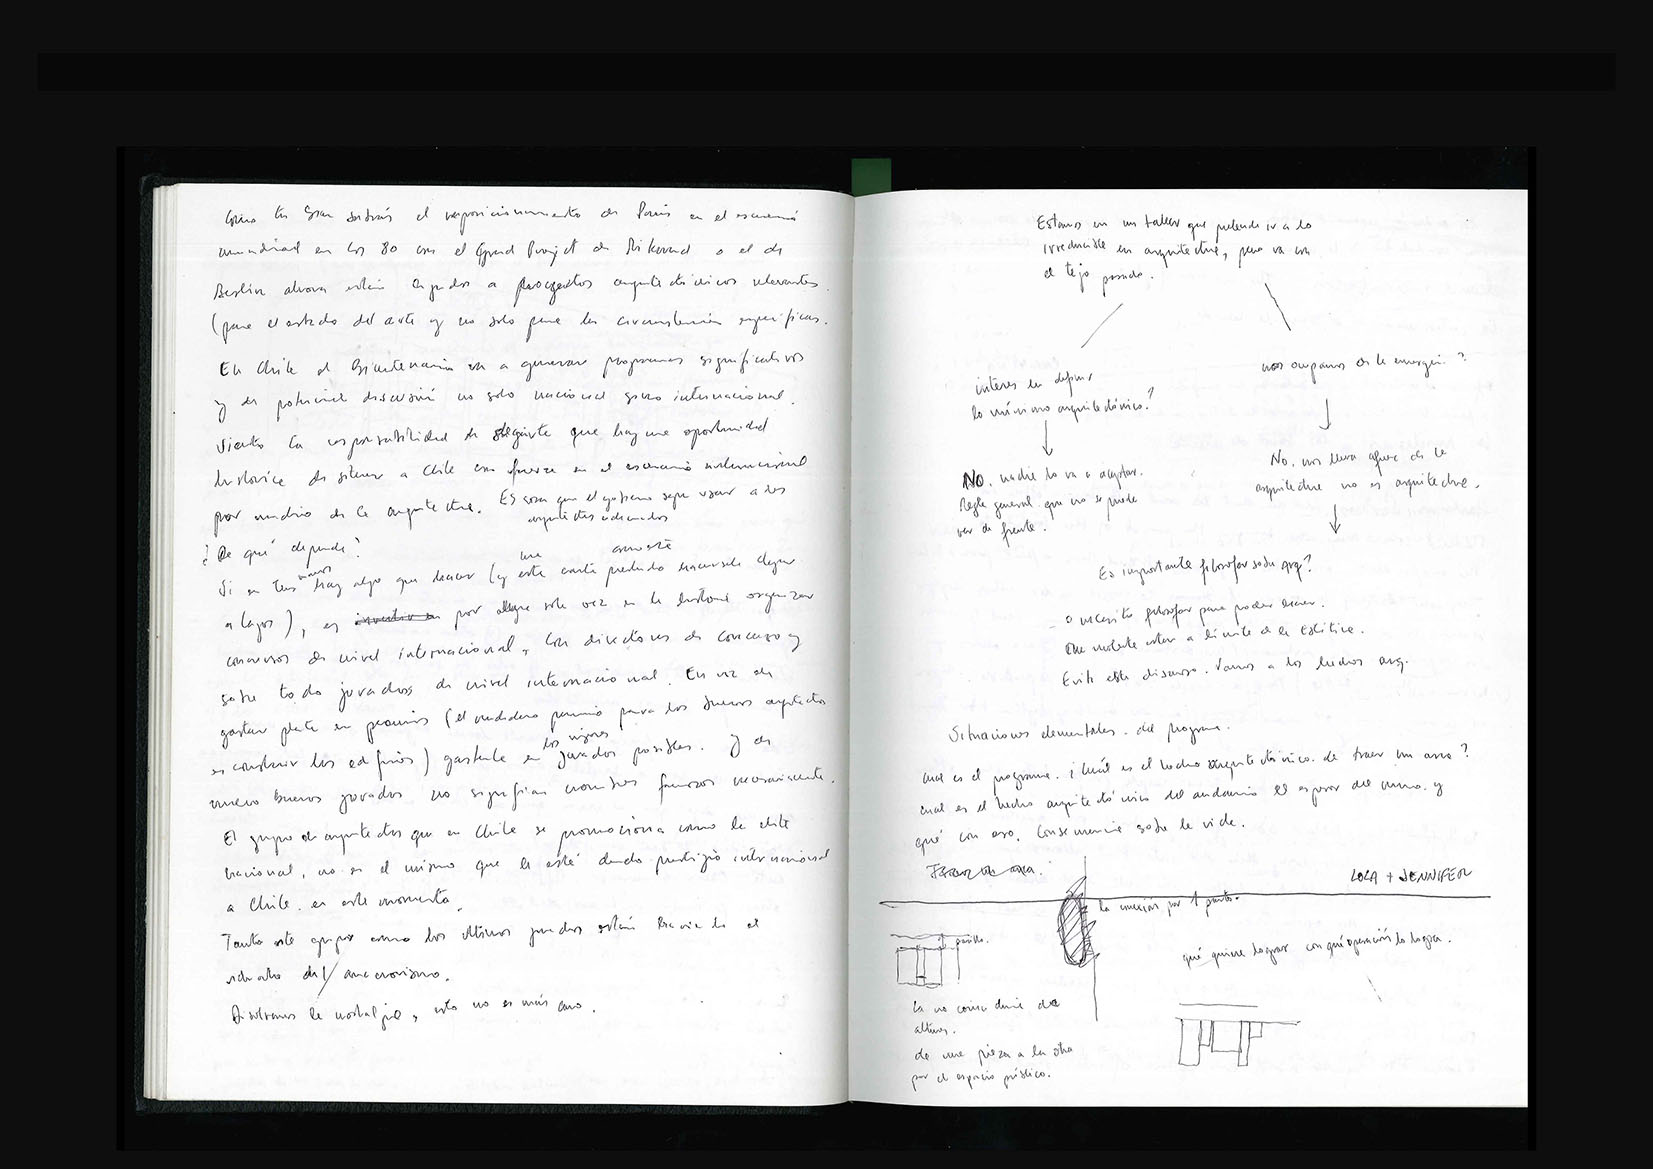 el reposicionamiento de París en el escenario
mundial en los 80 con el Grand Projet de o el de
Berlin ahora están ligados a proyectos arquitectónicos relevantes.
(para el estado del arte y no solo para las circunstancias específicas.
En Chile el Bicentenario va a generar programas significativos
y de potencial discusión no solo nacional sino internacional.
Siento la responsabilidad de que hay una oportunidad
histórica de situar a Chile con fuerza en el escenario internacional
por medio de la arquitectura. Es cosa que el gobierno sepa usar a los
arquitectos adecuados
¿De qué depende?
una
manos
Si en tus hay algo que hacer (y esta carta pretende
a Lagos), es por alguna sola vez en la historia organizar
concursos de nivel internacional, con directores de concurso y
sobre todo jurados de nivel internacional. En vez de
gastar plata en premios (el verdadero premio para los buenos arquitectos
es construir los edificios) gastarla en
los mejores
jurados posibles. y de
nuevo buenos jurados no significan nombres famosos necesariamente.
El grupo de arquitectos que en Chile se promociona como la elite
nacional, no es el mismo que le está dando prestigio internacional
a Chile en este momento.
Tanto este grupo como los últimos jurados están el
del anacronismo.
la nostalgia, esto no es más
Estamos en un taller que pretende ir a lo
irreducible en arquitectura, pero va con
el tejo pasado.
interes en definir
lo mínimo arquitectónico?
No, nadie lo va a aceptar.
Regla general que no se puede
ver de frente.
nos ocupamos de la energía?
No, nos lleva afuera de la
arquitectura no es arquitectura.
Es importante filosofar sobre arq?
o necesito filosofar para poder hacer.
Me molesta estar a límite de la
Evito este discurso. Vamos a los hechos arq.
Situaciones elementales del programa.
cual es el programa. ¿Cuál es el hecho arquitectónico de traer un
cual es el hecho arquitectónico del el espesor del muro. y
qué con eso. sobre la vida.
LOLA + JENNIFER
la conexión por 1 punto.
pasillo.
qué quiere lograr con qué operación lo logra.
la no coincidencia de
alturas.
de una pieza a la otra
por el espacio público.